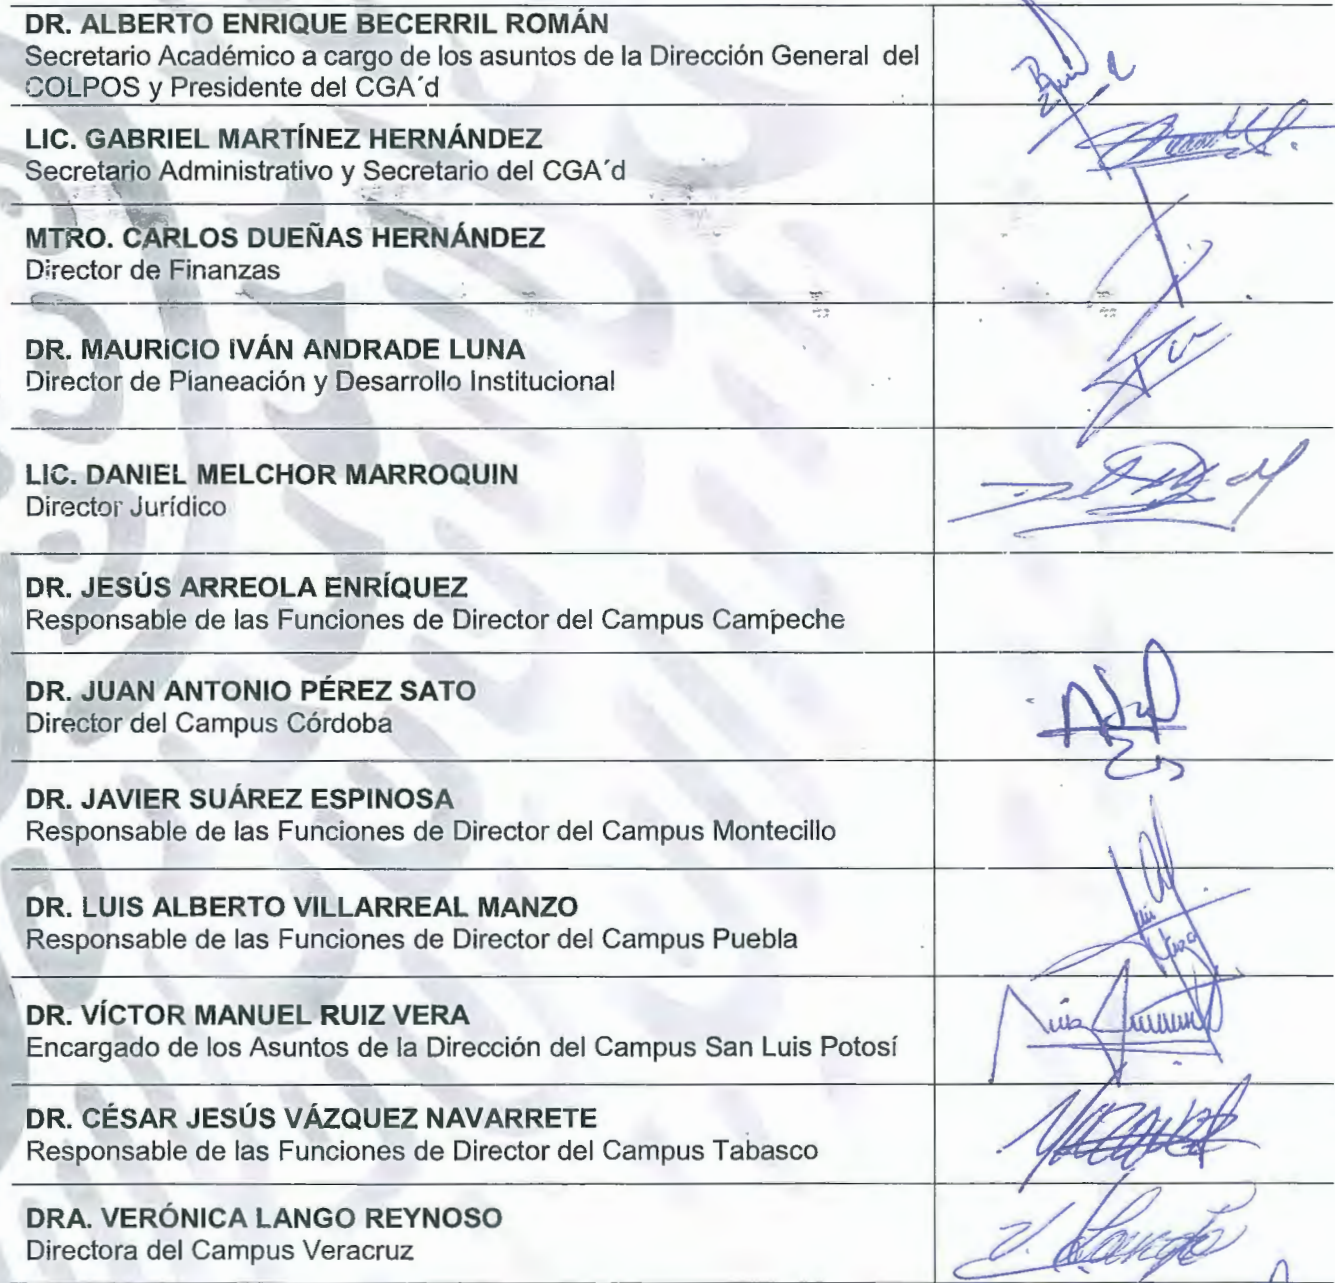 DR. ALBERTO ENRIQUE BECERRIL ROMÁN
Secretario Académico a cargo de los asuntos de la Dirección General del
COLPOS y Presidente del CGA´d
LIC. GABRIEL MARTÍNEZ HERNÁNDEZ
Secretario Administrativo y Secretario del CGA´d
MTRO. CARLOS DUEÑAS HERNÁNDEZ
Director de Finanzas
DR. MAURICIO IVÁN ANDRADE LUNA
Director de Planeación y Desarrollo Institucional
LIC. DANIEL MELCHOR MARROQUIN
Director Jurídico
DR. JESÚS ARREOLA ENRÍQUEZ
Responsable de las Funciones de Director del Campus Campeche
DR. JUAN ANTONIO PÉREZ SATO
Director del Campus Córdoba
DR. JAVIER SUÁREZ ESPINOSA
Responsable de las Funciones de Director del Campus Montecillo
DR. LUIS ALBERTO VILLARREAL MANZO
Responsable de las Funciones de Director del Campus Puebla
DR. VÍCTOR MANUEL RUIZ VERA
Encargado de los Asuntos de la Dirección del Campus San Luis Potosí
DR. CÉSAR JESÚS VÁZQUEZ NAVARRETE
Responsable de las Funciones de Director del Campus Tabasco
DRA. VERÓNICA LANGO REYNOSO
Directora del Campus Veracruz